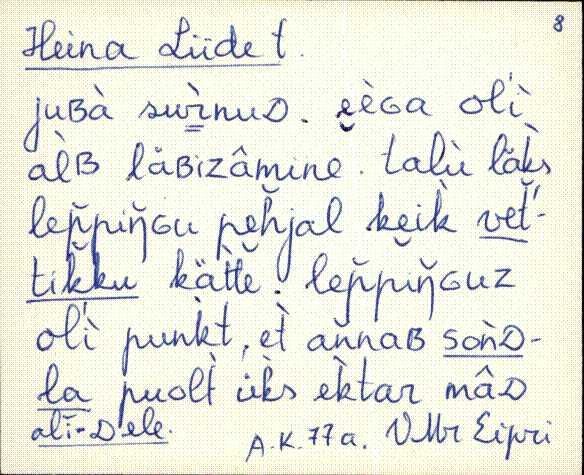 8
Heina Liidet.
juʙà suʀ̀nuᴅ. èɢa oĺì
al̀ʙ låʙizâmine. talù läk̀s
lep̆piŋ̆ɢu peh̆jal keik̀ vet̆'-
tik̆ku kät̀te. lep̆piŋ̆ɢuz
oĺì punk̀t, et̀ an̆naʙ soǹᴅ-
la puol̀t ük̀s ek̀tar mâᴅ
ali-ᴅele.
A.K. 77 a. VMr Eipri